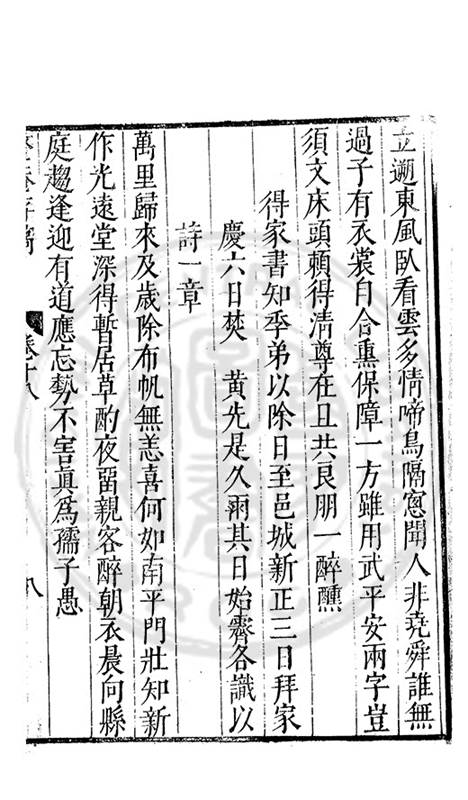 立遡東風臥看雲多情啼鳥隔窻聞人非堯舜誰無
過子有衣裳自合熏保障一方雖用武平安兩字豈
須文床頭頼得清尊在且共良朋一醉醺
得家書知季弟以除日至邑城新正三日拜家
慶六日焚 黄先是久雨其日始霽各識以
詩一章
萬里歸來及歲除布帆無恙喜何如南平門壯知新
作光遠堂深得暫居草酌夜留親客醉朝衣晨向縣
庭趨逢迎有道應忘勢不害眞爲孺子愚
存稿 卷十八 八